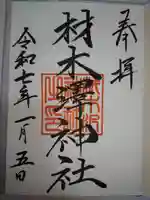 奉拝
材木澤神社
令和七年一月五日